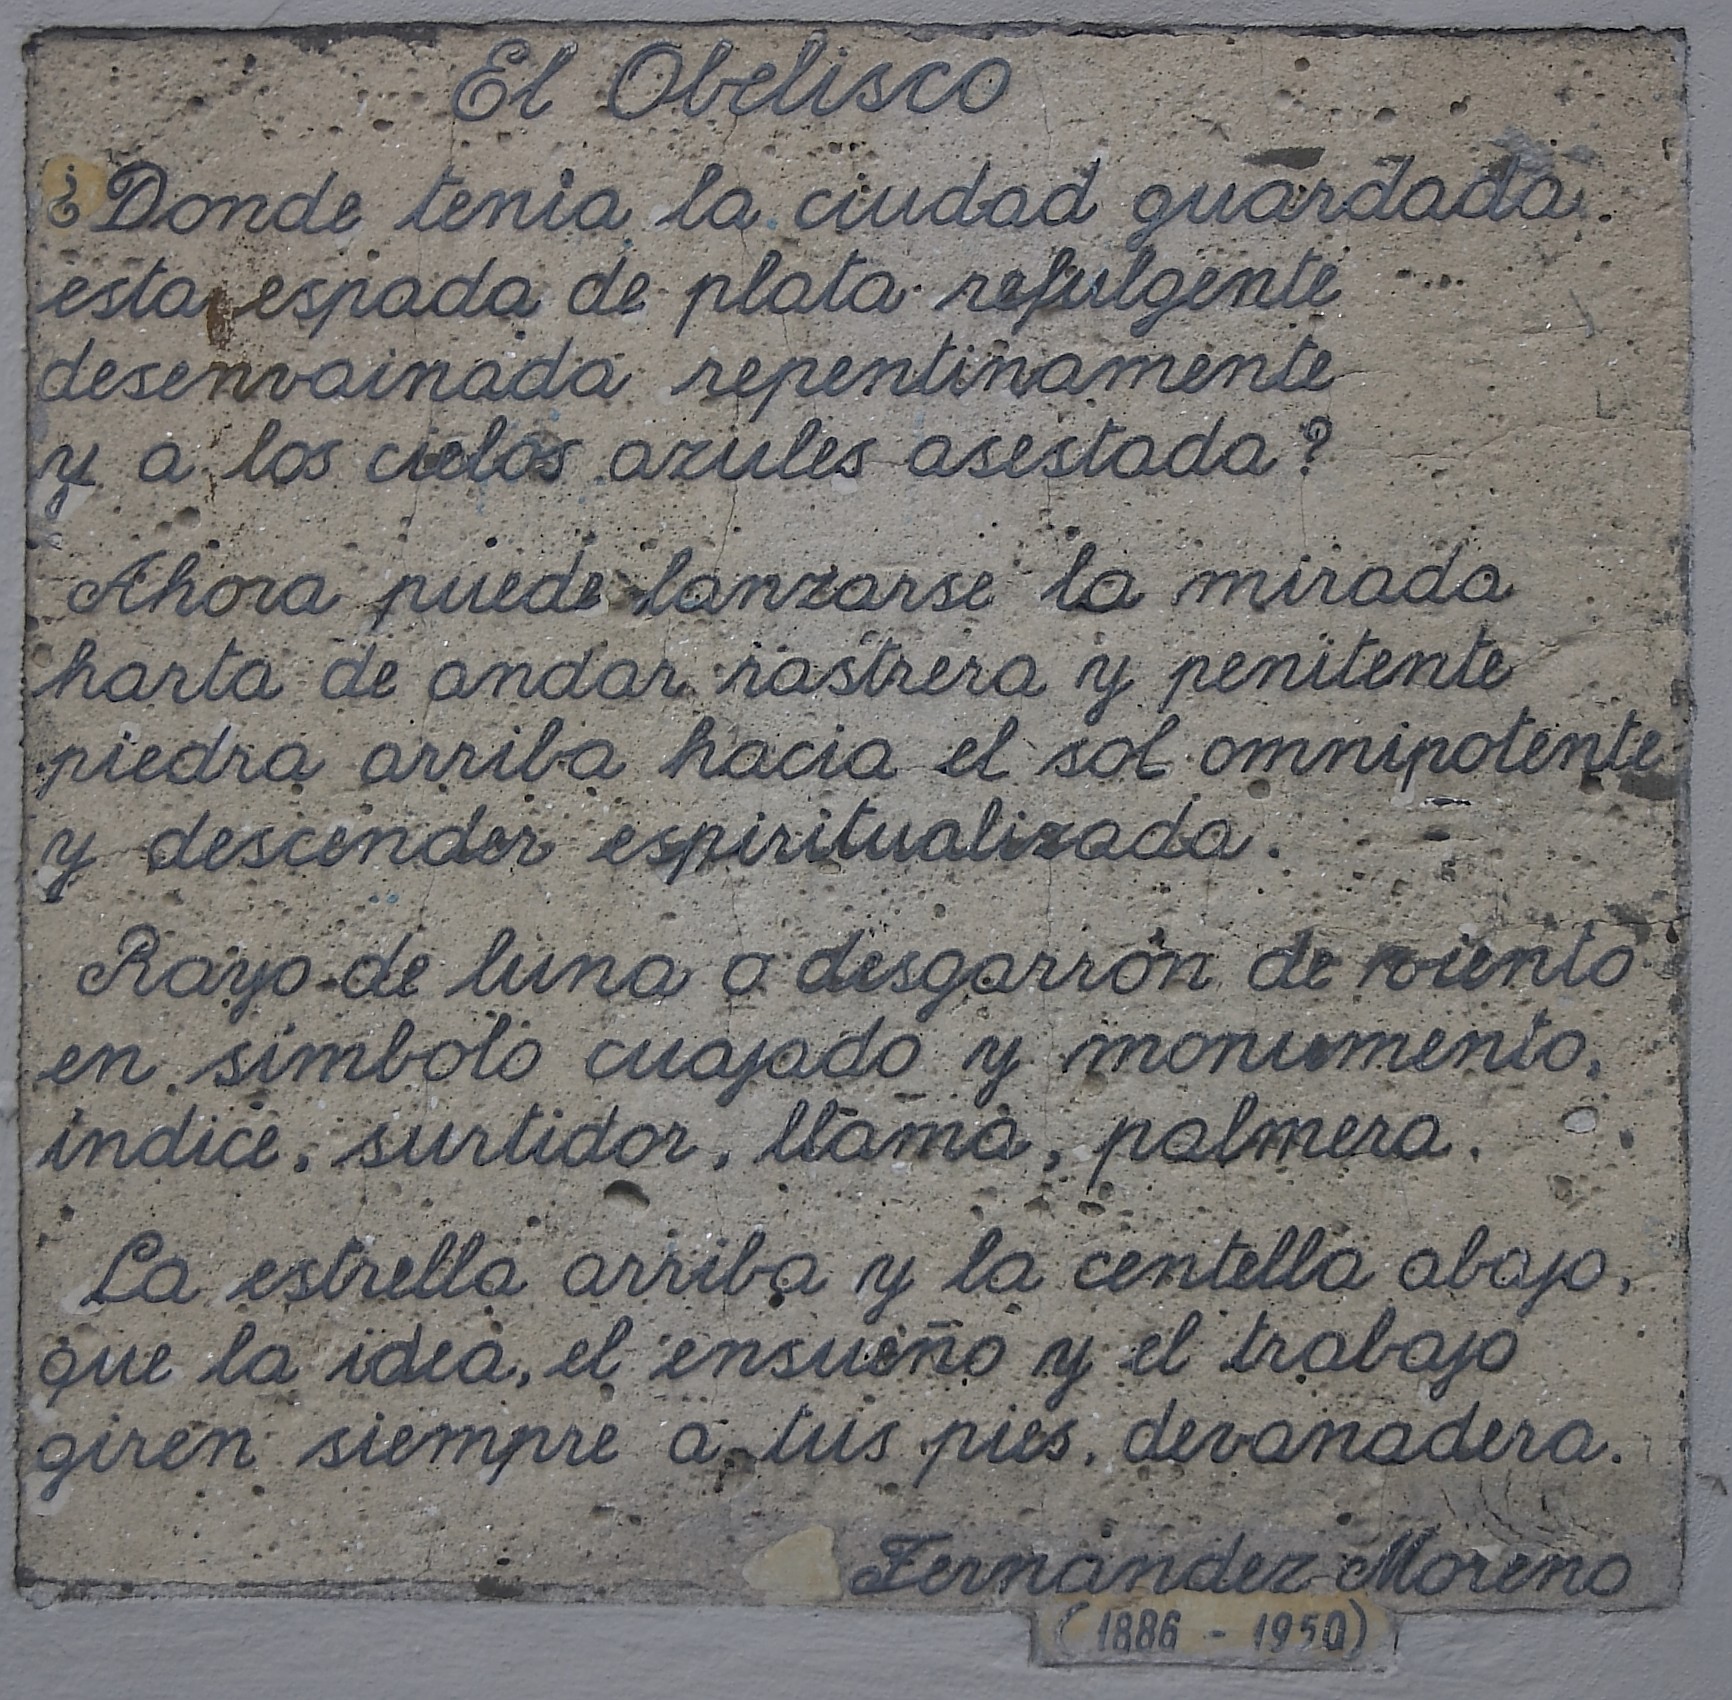 El Obelisco
¿Donde tenia la ciudad guardada
esta espada de plata refulgente
desenvainada repentinamente
y a los cielos azules asestada?
Ahora puede lanzarse la mirada
harta de andar rastrera y penitente
piedra arriba hacia el sol omnipotente
y descender espiritualizada.
Rayo de luna o desgarrón de viento
en símbolo cuajado y monumento,
índice, surtidor, llama, palmera.
La estrella arriba y la centella abajo,
que la idea, el ensueño y el trabajo
giren siempre a tus pies, devanadera.
Fernandez Moreno
(1886 - 1950)